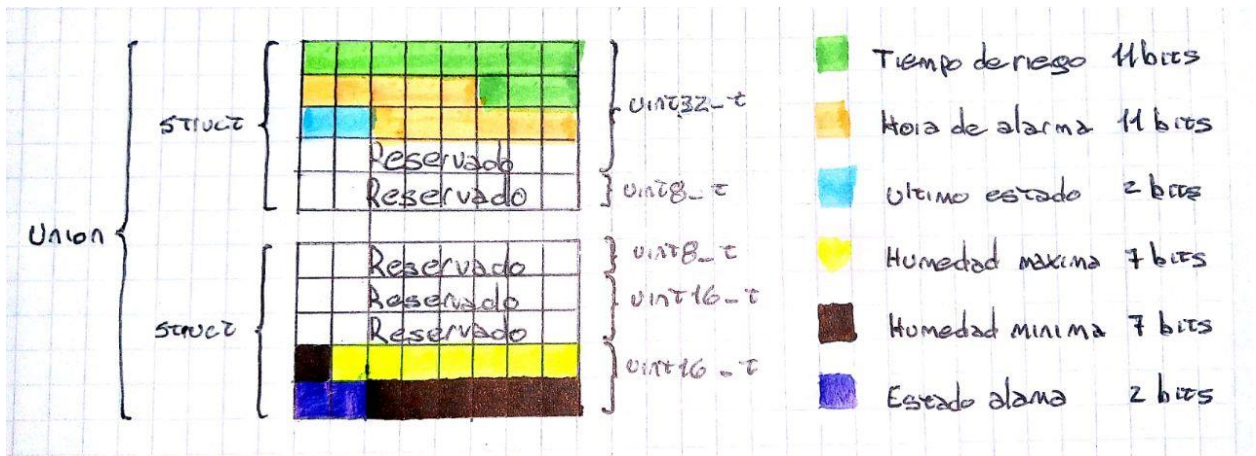 Union
struct
Reservado
Reservado
uint32_t
uint8_t
struct
Reservado
Reservado
Reservado
uint8_t
uint16_t
uint16_t
Tiempo de riego 11 bits
Hora de alarma 11 bits
Ultimo estado 2 bits
Humedad maxima 7 bits
Humedad minima 7 bits
Estado alama 2 bits